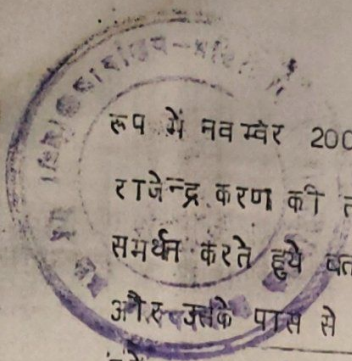 रूप में नवम्वर 200
राजेन्द्र करण की त
समर्थन करते हुये बत
और उसके पास से